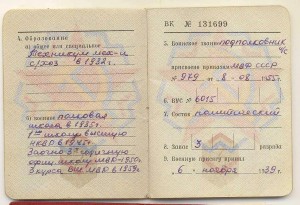 4. Образование
а) общее или специальное
Техникум мех-и
с/хоз. в 1932 г.
б) военное полковая
школа в 1935 г.
1ую школу высшую
НКВД в 1945 г.
Заочно 3х годичную
офиц. школу МВД-1950г.
3 курса МВД в 1954г.
ВК № 131699
5. Воинское звание подполковник
в/с
присвоено приказом МВД СССР
№ 279 « 8 » 08 1955 г.
6. ВУС № 6015
7. Состав политический
8. Запас 3 разряда
9. Военную присягу принял
« 6 » ноября 1939 г.